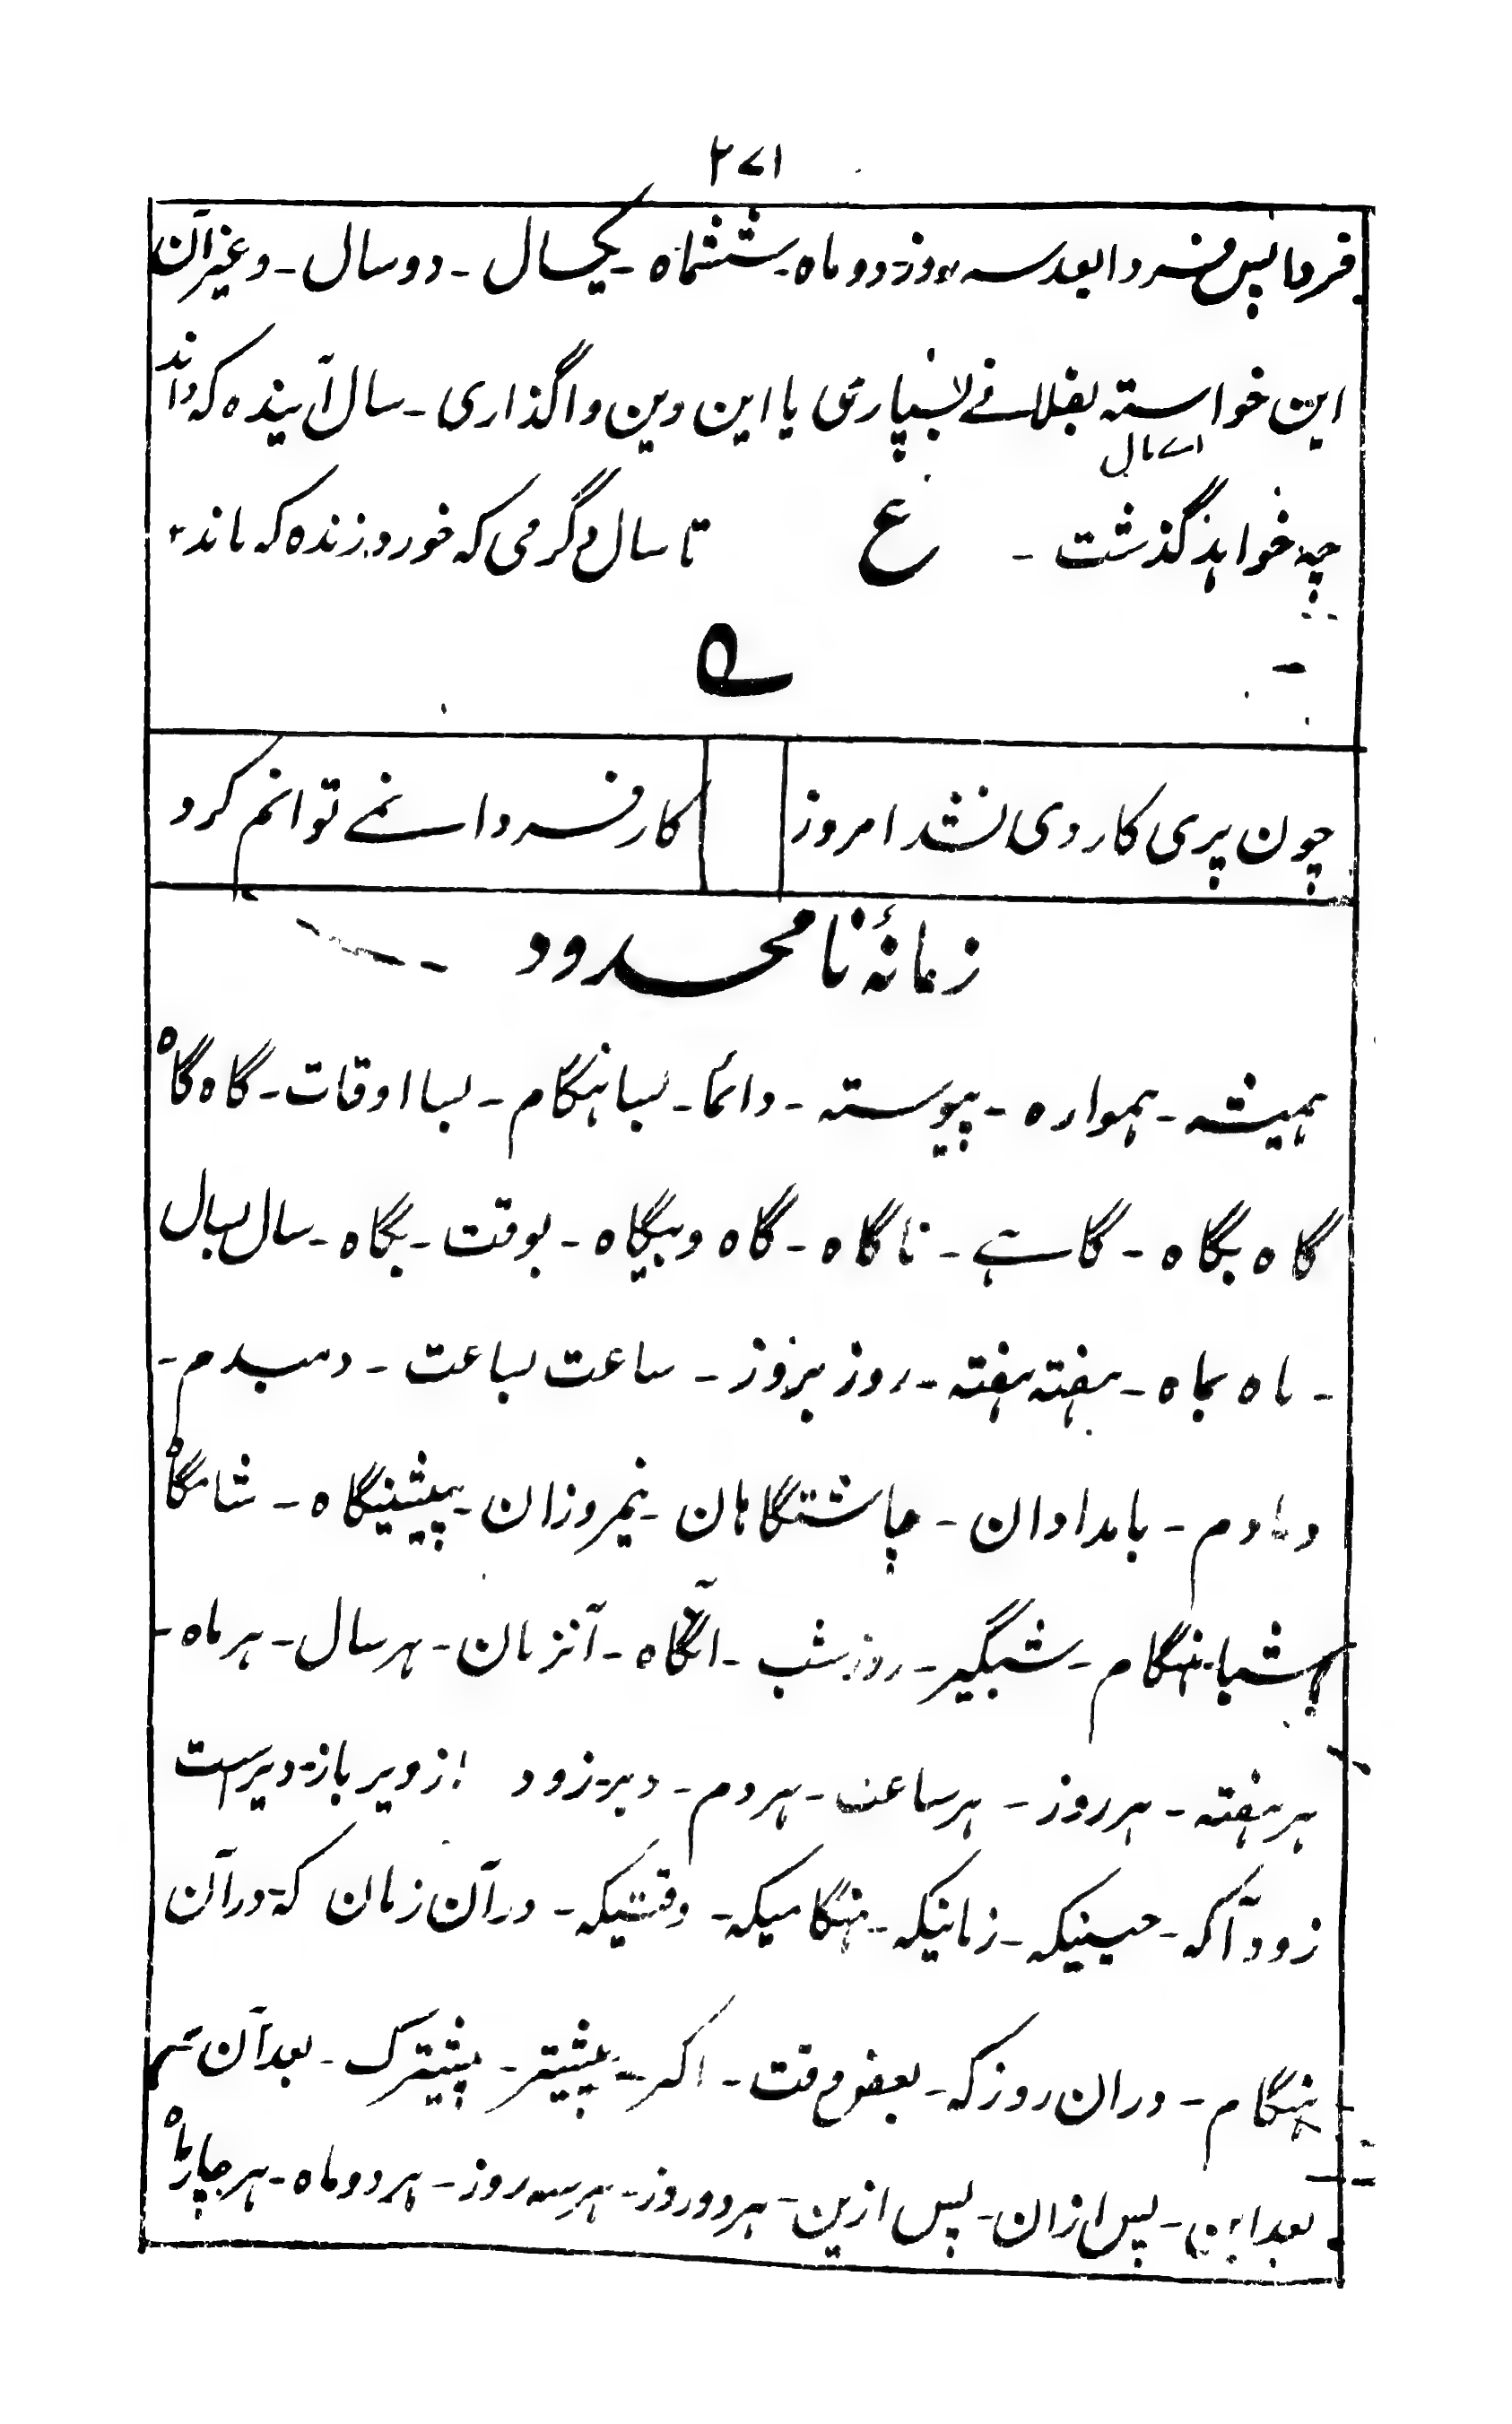 ۲۷۱
فردا پس فردا بعد سه روز دو ماه۔ ششماه۔ یکسال۔ دو سال۔ وغیر آن
این خواسته بفلانے بسپارمی یا این وین واگذاری۔ سال آینده که داند
اے مال
چه خواہد گذشت۔ ع تا سال دگر می که خورد زنده که ماند
ے
چون پری کار دی نشد امروز کار فردا نمے توانم کرد
زمانۂ نامحدود
ہمیشه۔ ہمواره۔ پیوسته۔ دائما۔ بسا ہنگام۔ بسا اوقات۔ گاه گاه
گاه بگاه۔ گاہے۔ ناگاه۔ گاه و بیگاه۔ بوقت۔ بگاه۔ سال بسال
۔ ماه بماه۔ ہفته ہفته۔ روز بروز۔ ساعت بساعت۔ دمبدم۔
دمادم۔ بامدادان۔ چاشتگاہان۔ نیمروزان۔ پیشینگاه۔ شامگاه
شباہنگام۔ شبگیر۔ روز شب۔ آنگاه۔ آنزمان۔ ہر سال۔ ہر ماه۔
ہر ہفته۔ ہر روز۔ ہر ساعت۔ ہر دم۔ دیر۔ زود از دیر باز۔ دیر است
زود آکه۔ حینیکه۔ زمانیکه۔ ہنگامیکه۔ وقتیکه۔ در آن زمان که۔ در آن
ہنگام۔ دران روز که۔ بعض وقت۔ اکثر۔ پیشتر۔ پیشترک۔ بعد آن
بعد این۔ پس ازان۔ پس ازین۔ ہر دو روز۔ ہر سه روز۔ ہر دو ماه۔ ہر چار ماه